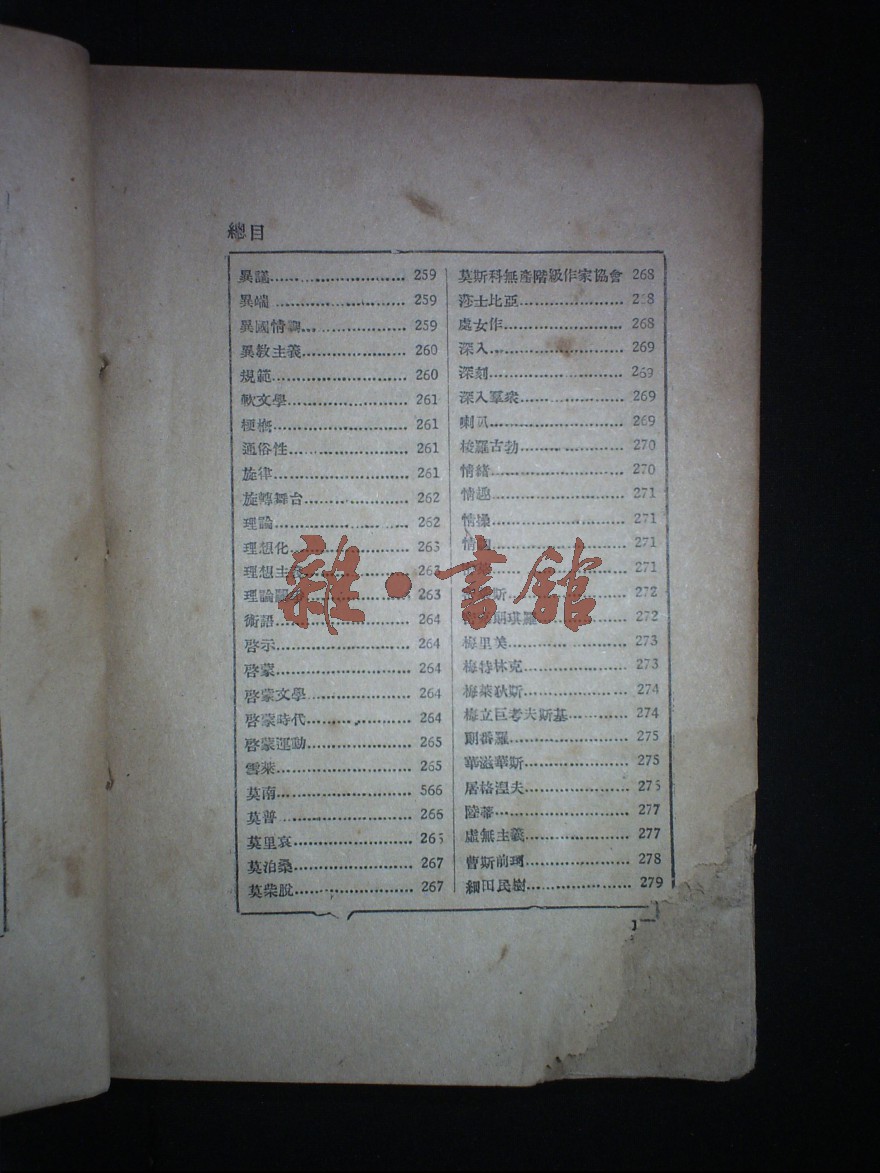 總目
異議 259
異端 259
異國情調 259
異敎主義 260
規範 260
軟文學 261
梗槪 261
通俗性 261
旋律 261
旋轉舞台 262
理論 262
理想化 263
理想主義 263
理論鬭爭 263
術語 264
啓示 264
啓蒙 264
啓蒙文學 264
啓蒙時代 264
啓蒙運動 265
雪萊 265
莫南 566
莫普 266
莫里哀 266
莫泊桑 267
莫柴脫 267
莫斯科無產階級作家協會 268
莎士比亞 268
處女作 268
深入 269
深刻 269
深入羣衆 269
喇叭 269
梭羅古勃 270
情緖 270
情趣 271
情操 271
情調 271
271
斯 272
琪羅 272
梅里美 273
梅特林克 273
梅萊狄斯 274
梅立巨考夫斯基 274
剛番羅 275
華滋華斯 275
屠格涅夫 275
陸蒂 277
虛無主義 277
曹斯前珂 278
細田民樹 279
雜·書館